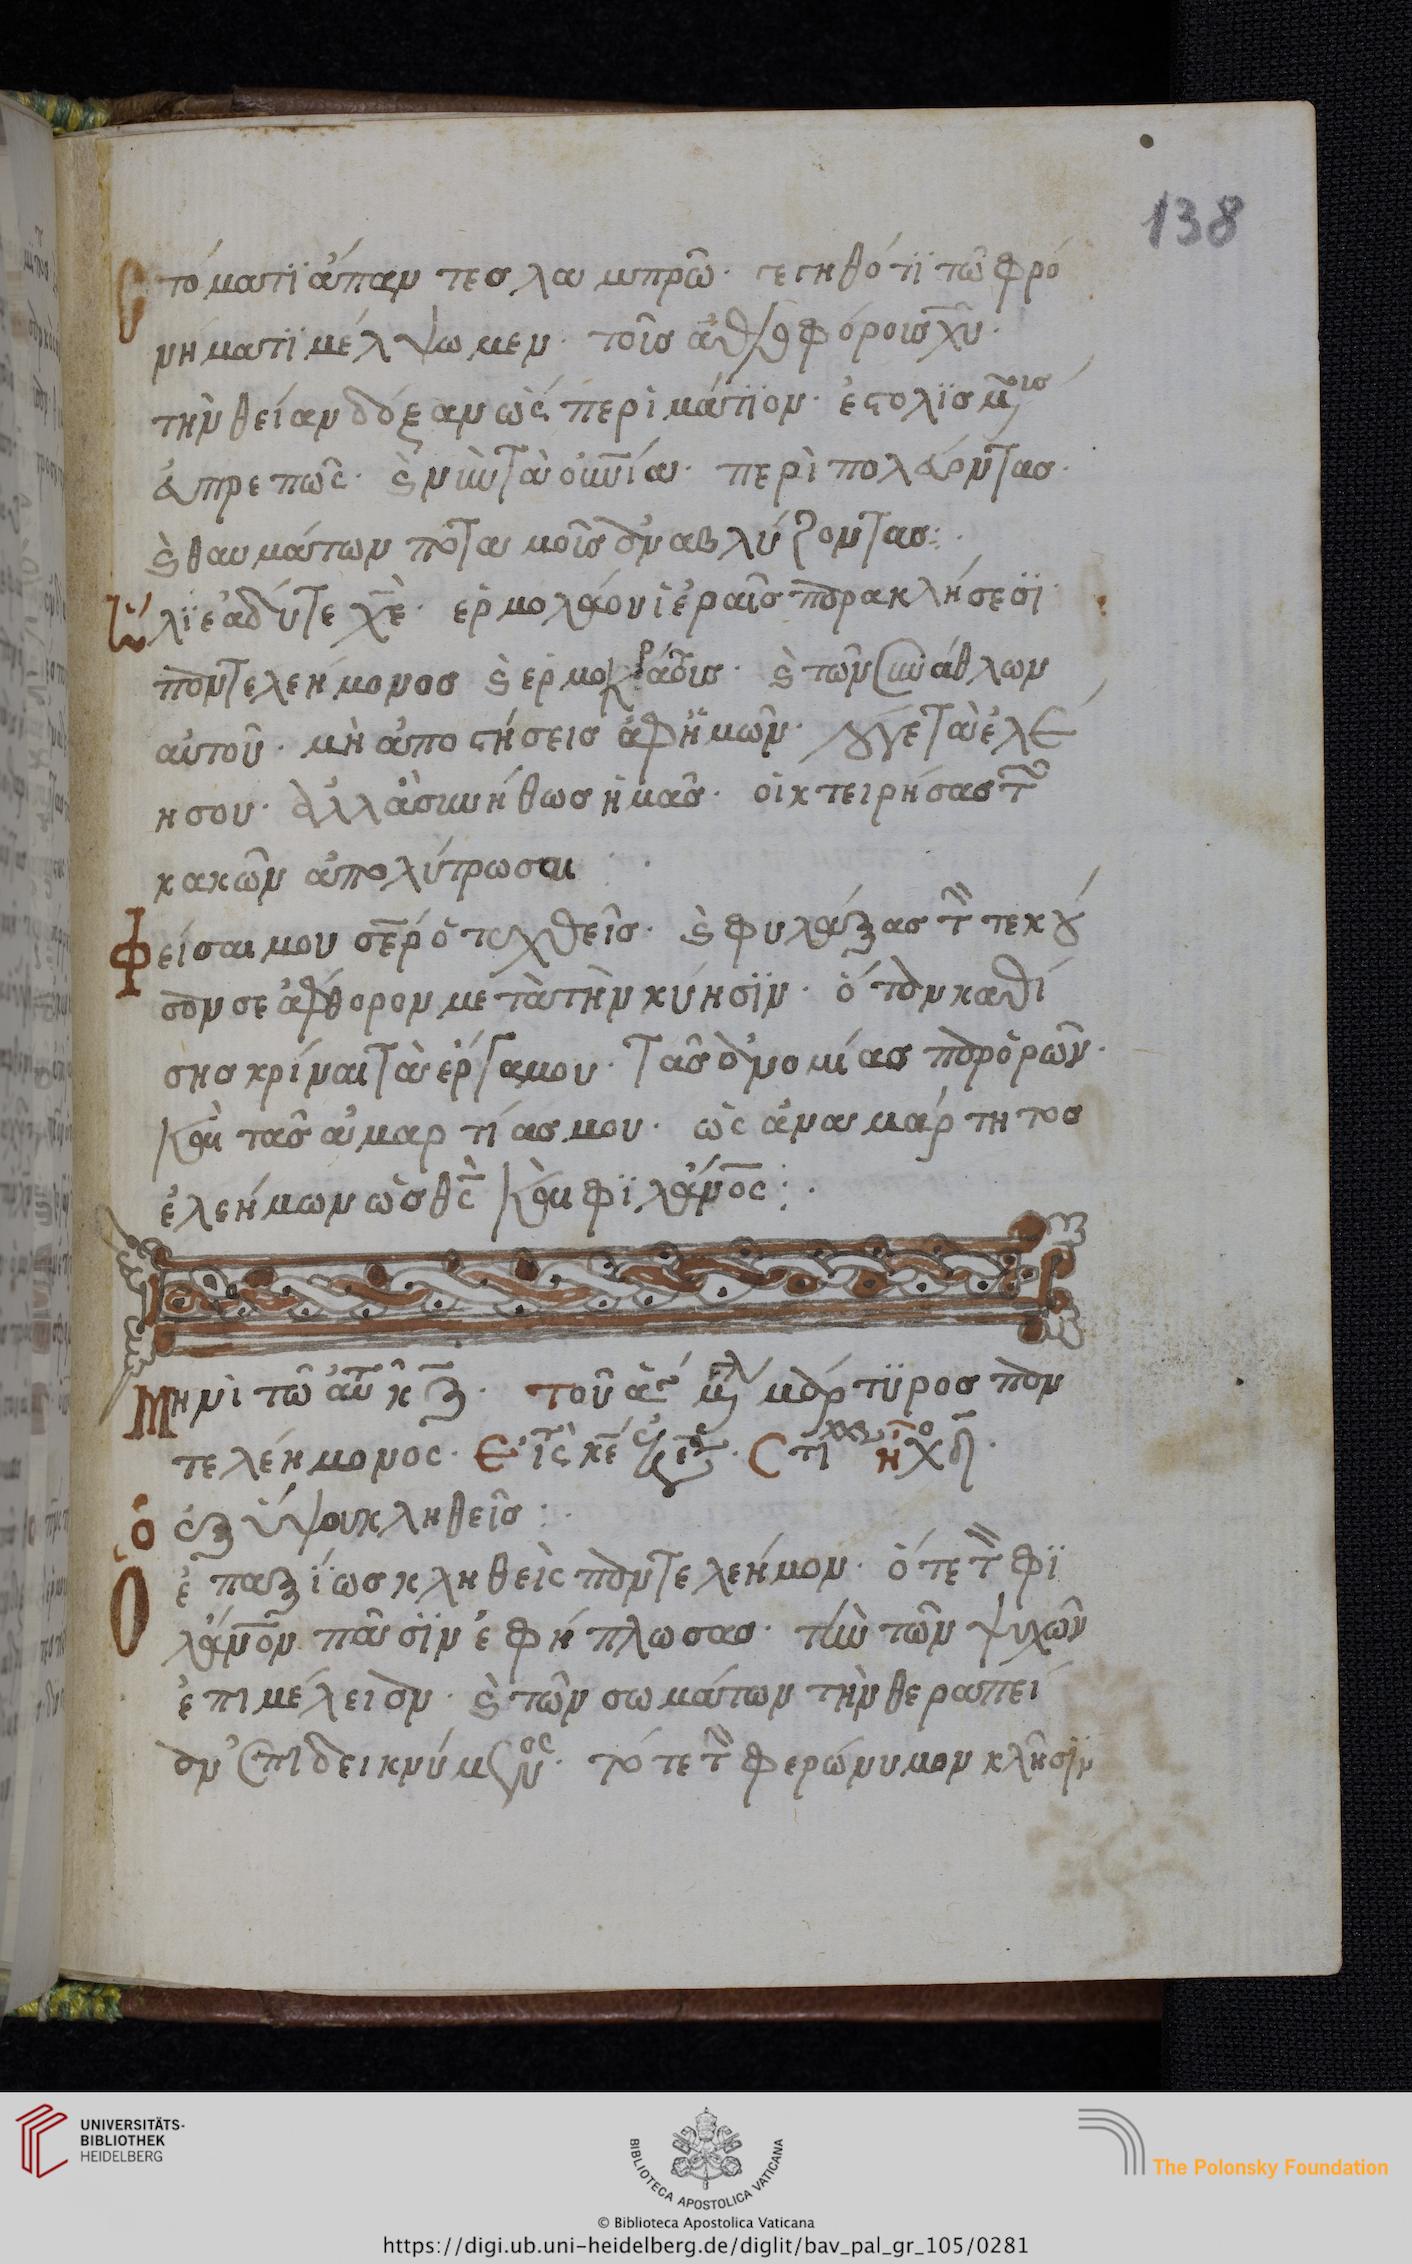 138
Στόματϊ ἅπαντες λαμπρῶ· γεγηθότϊ τῶ φρο
νήματϊ μέλψωμεν· τοῖς ἀθλοφόροις χῦ·
τὴν θείαν δόξαν ὡς περιμάτϊον· ἐστολϊσμένοις
εὐπρεπῶς· καὶ νῦν τὰ οὐράνια· περιπολεύοντας·
καὶ θαυμάτων ποταμοῖς ἀναβλύζοντας:·
Ἱλϊεώθητι χὲ· ἑρμολάου ἱεραῖς παρακλήσεσϊ·
παντελεήμονος καὶ ἑρμοκράτους· καὶ τῶν συνάθλων
αὐτοῦ· μὴ ἀποστήσεις ἀφ ἡμῶν· μήτε τὰ ἐλέ
η σου· ἀλλὰ συνήθως ἡμᾶς· οἰκτειρήσας τῶν
κακῶν ἀπολύτρωσαι
Φεῖσαι μου σερ ὁ τεχθεὶς· καὶ φυλάξας τὴν τεκοῦ
σαν σε ἄφθορον μετὰ τὴν κύησϊν· ὅταν καθί
σης κρίναι τὰ ἔργα μου· τὰς ἀνομίας παρορῶν·
καὶ τὰς ἁμαρτίας μου· ὡς ἀναμάρτητος
ἐλεήμων ὡς θς καὶ φϊλάνος:·
Μηνὶ τῶ αὐτῶ κζ· τοῦ ἁγίου μεγαλομάρτϋρος παν
τελεήμονος· Εἰς τὸ κε ἐκέκραξα· Στιχηρὰ ἦχος δ·
ὁ ἐξ ὑψίστου κληθεὶς:·
Ὁ ἐπαξίως κληθεὶς παντελεήμον· ὅτε τὴν φϊ
λάνον πᾶσϊν ἐφήπλωσας· τὴν τῶν ψυχῶν
ἐπιμέλειαν· καὶ τῶν σωμάτων τὴν θεραπεί
αν ἐπιδεικνύμενος· τότε τὴν φερώνυμον κλῆσϊν
UNIVERSITÄTS-
BIBLIOTHEK
HEIDELBERG
BIBLIOTECA APOSTOLICA VATICANA
The Polonsky Foundation
© Biblioteca Apostolica Vaticana
https://digi.ub.uni-heidelberg.de/diglit/bav_pal_gr_105/0281